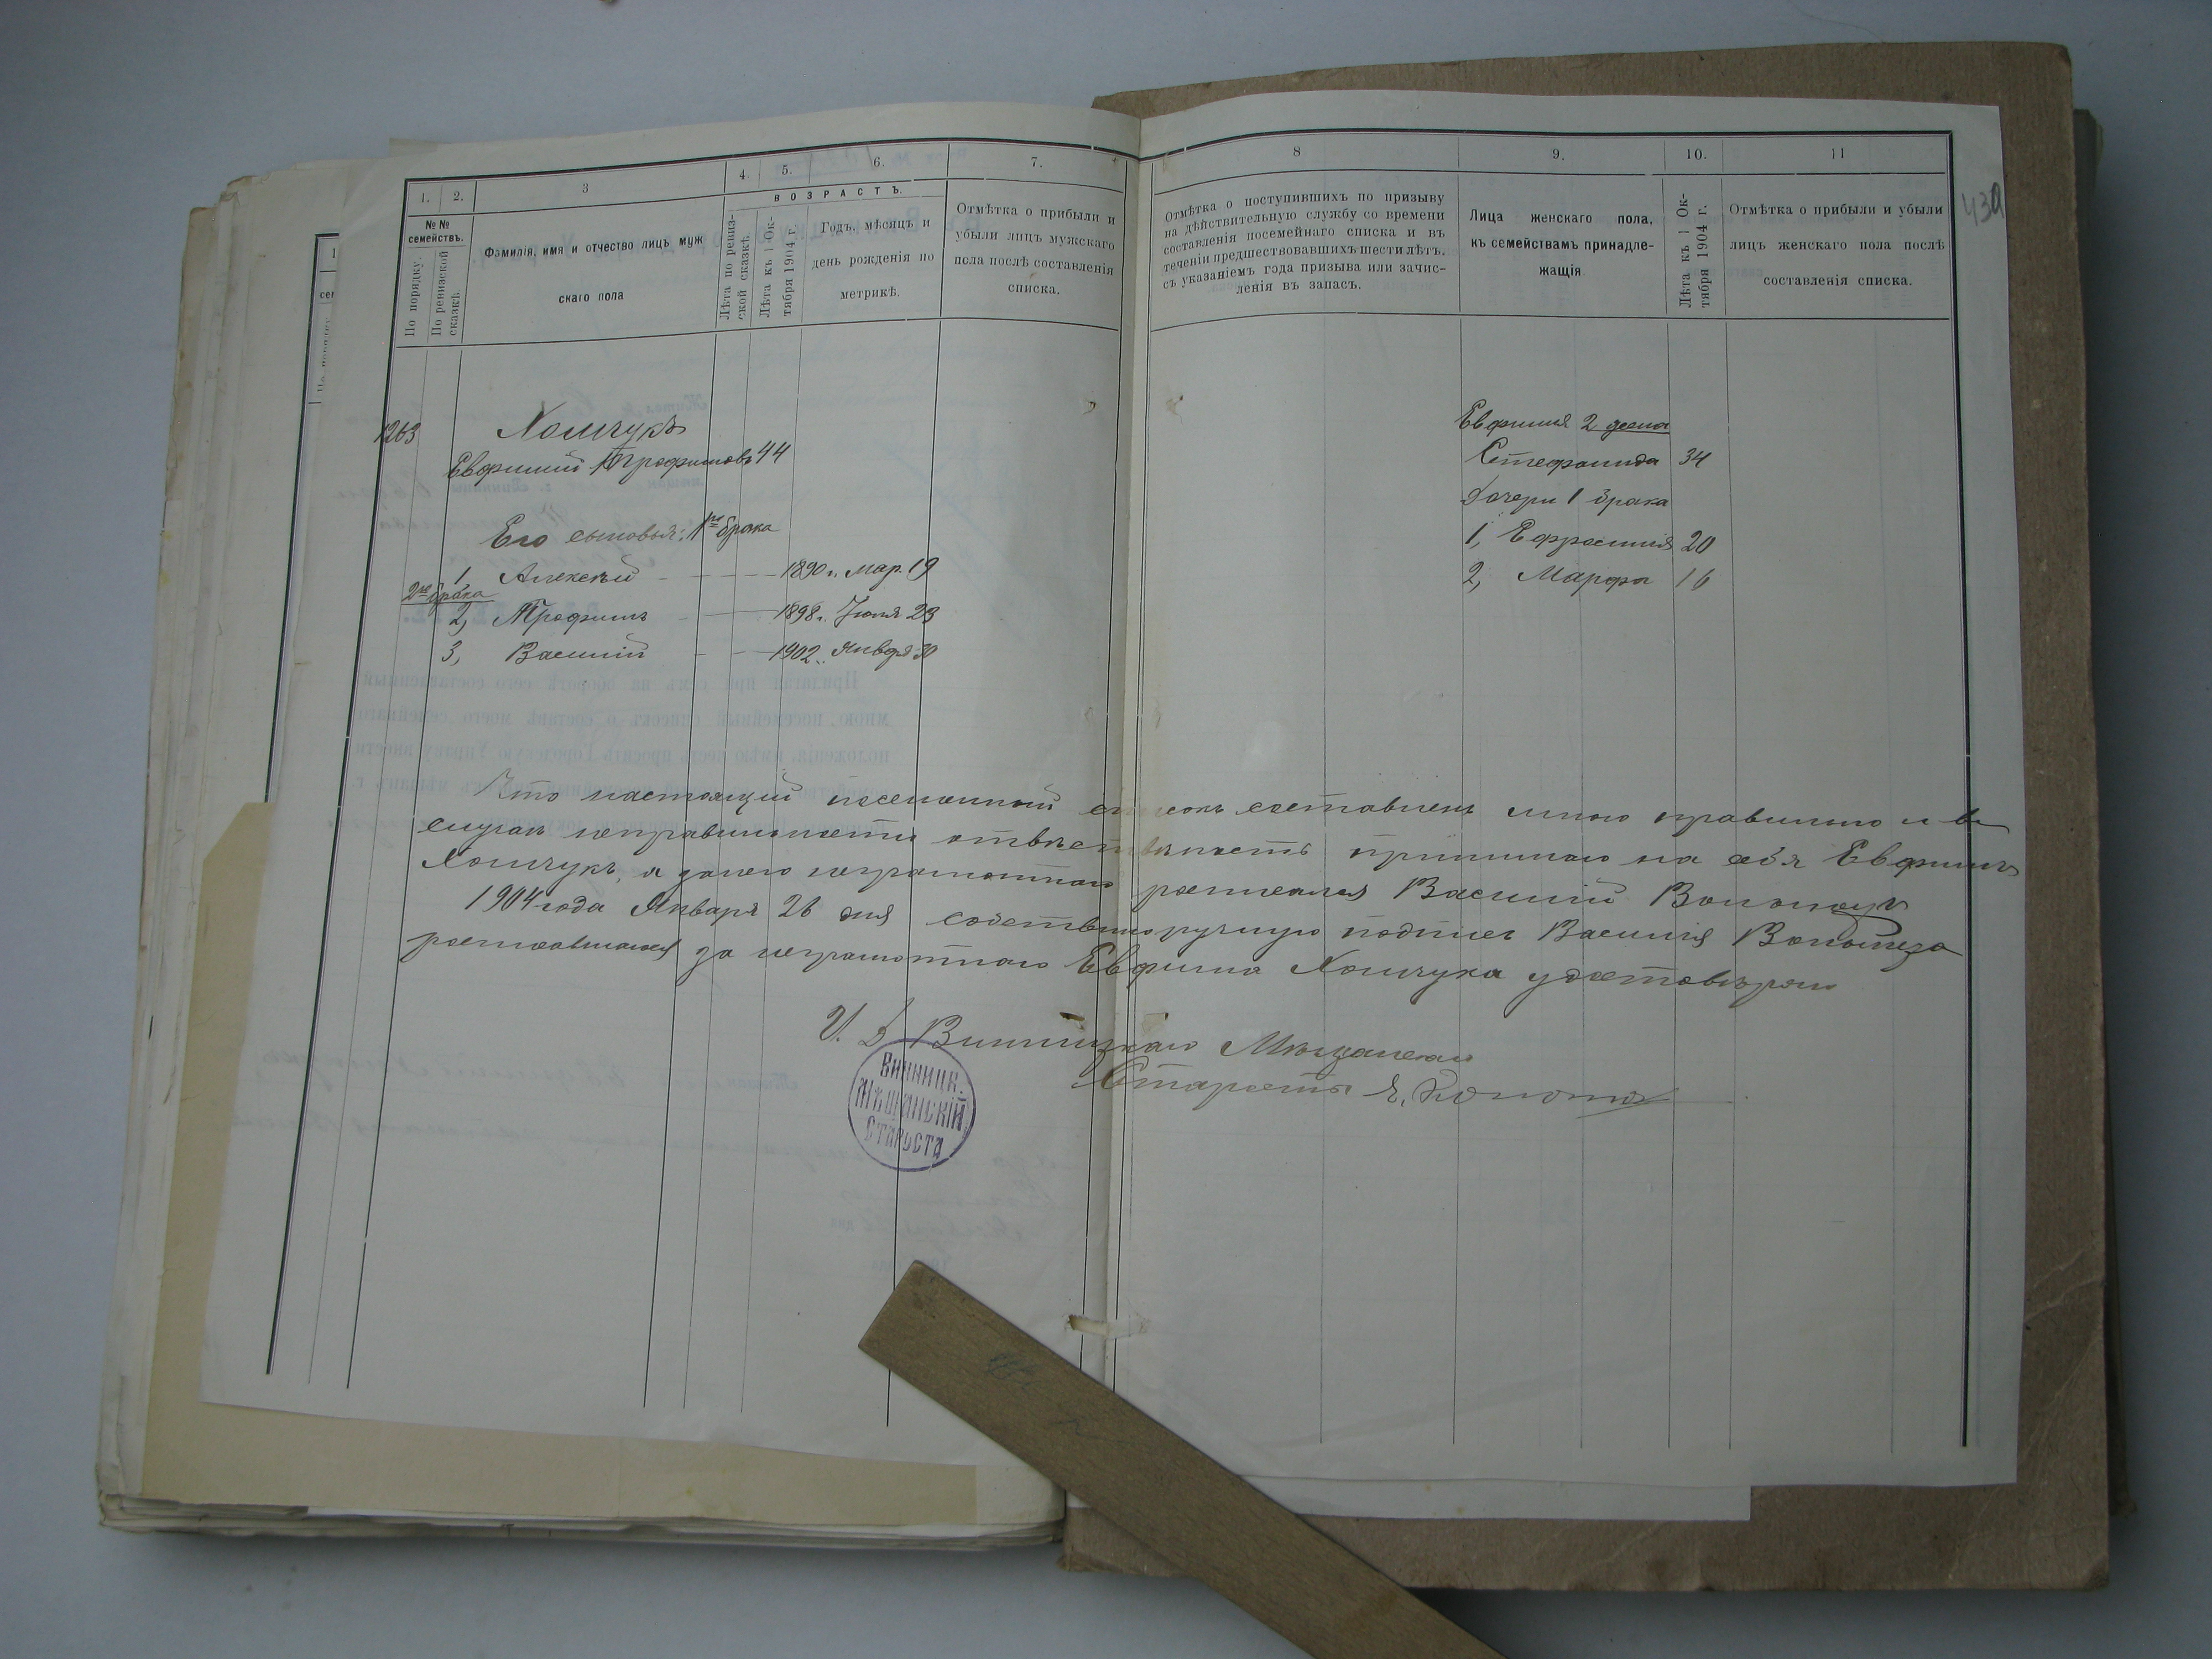 1. 2. 3 4. 5. 6. 7.
ВОЗРАСТЪ.
№№ семействъ.
По порядку.
По ревизской сказкѣ.
Фамилія, имя и отчество лицъ муж
скаго пола
Лѣта по ревиз-
ской сказкѣ.
Лѣта къ 1 Ок-
тября 1904 г.
Годъ, мѣсяцъ и
день рожденія по
метрикѣ.
Отмѣтка о прибыли и
убыли лицъ мужскаго
пола послѣ составленія
списка.
8 9. 10. 11
Отмѣтка о поступившихъ по призыву
на дѣйствительную службу со времени
составленія посемейнаго списка и въ
теченіи предшествовавшихъ шести лѣтъ.
съ указаніемъ года призыва или зачис-
ленія въ запасъ.
Лица женскаго пола,
къ семействамъ принадле-
жащія
Лѣта къ 1 Ок-
тября 1904 г.
Отмѣтка о прибыли и убыли
лицъ женскаго пола послѣ
составленія списка.
430
1263 Хомчукъ
Евфимій Трофимовъ 44
Его сыновья: 1го брака
1 Алексѣй 1890 г. мар. 19
2го брака
2, Трофимъ 1898 г. Іюля 23
3, Василій 1902 Января 30
Евфимія 2 жена
Стефанида 34
Дочери 1 брака
1, Ефросинія 20
2, Марфа 16
Что настоящій посемейный списокъ составленъ мною правильно и въ
случаѣ неправильности отвѣтственность принимаю на себя Евфимъ
Хомчукъ, а за него неграмотнаго росписался Василій
1904 года Января 26 дня собственноручную подпись Василія
росписавшагося за неграмотнаго Евфима Хомчука удостовѣряю
И. Д. Винницкаго Мѣщанскаго
Старосты
ВИННИЦК.
МѢЩАНСКІЙ
СТАРОСТА